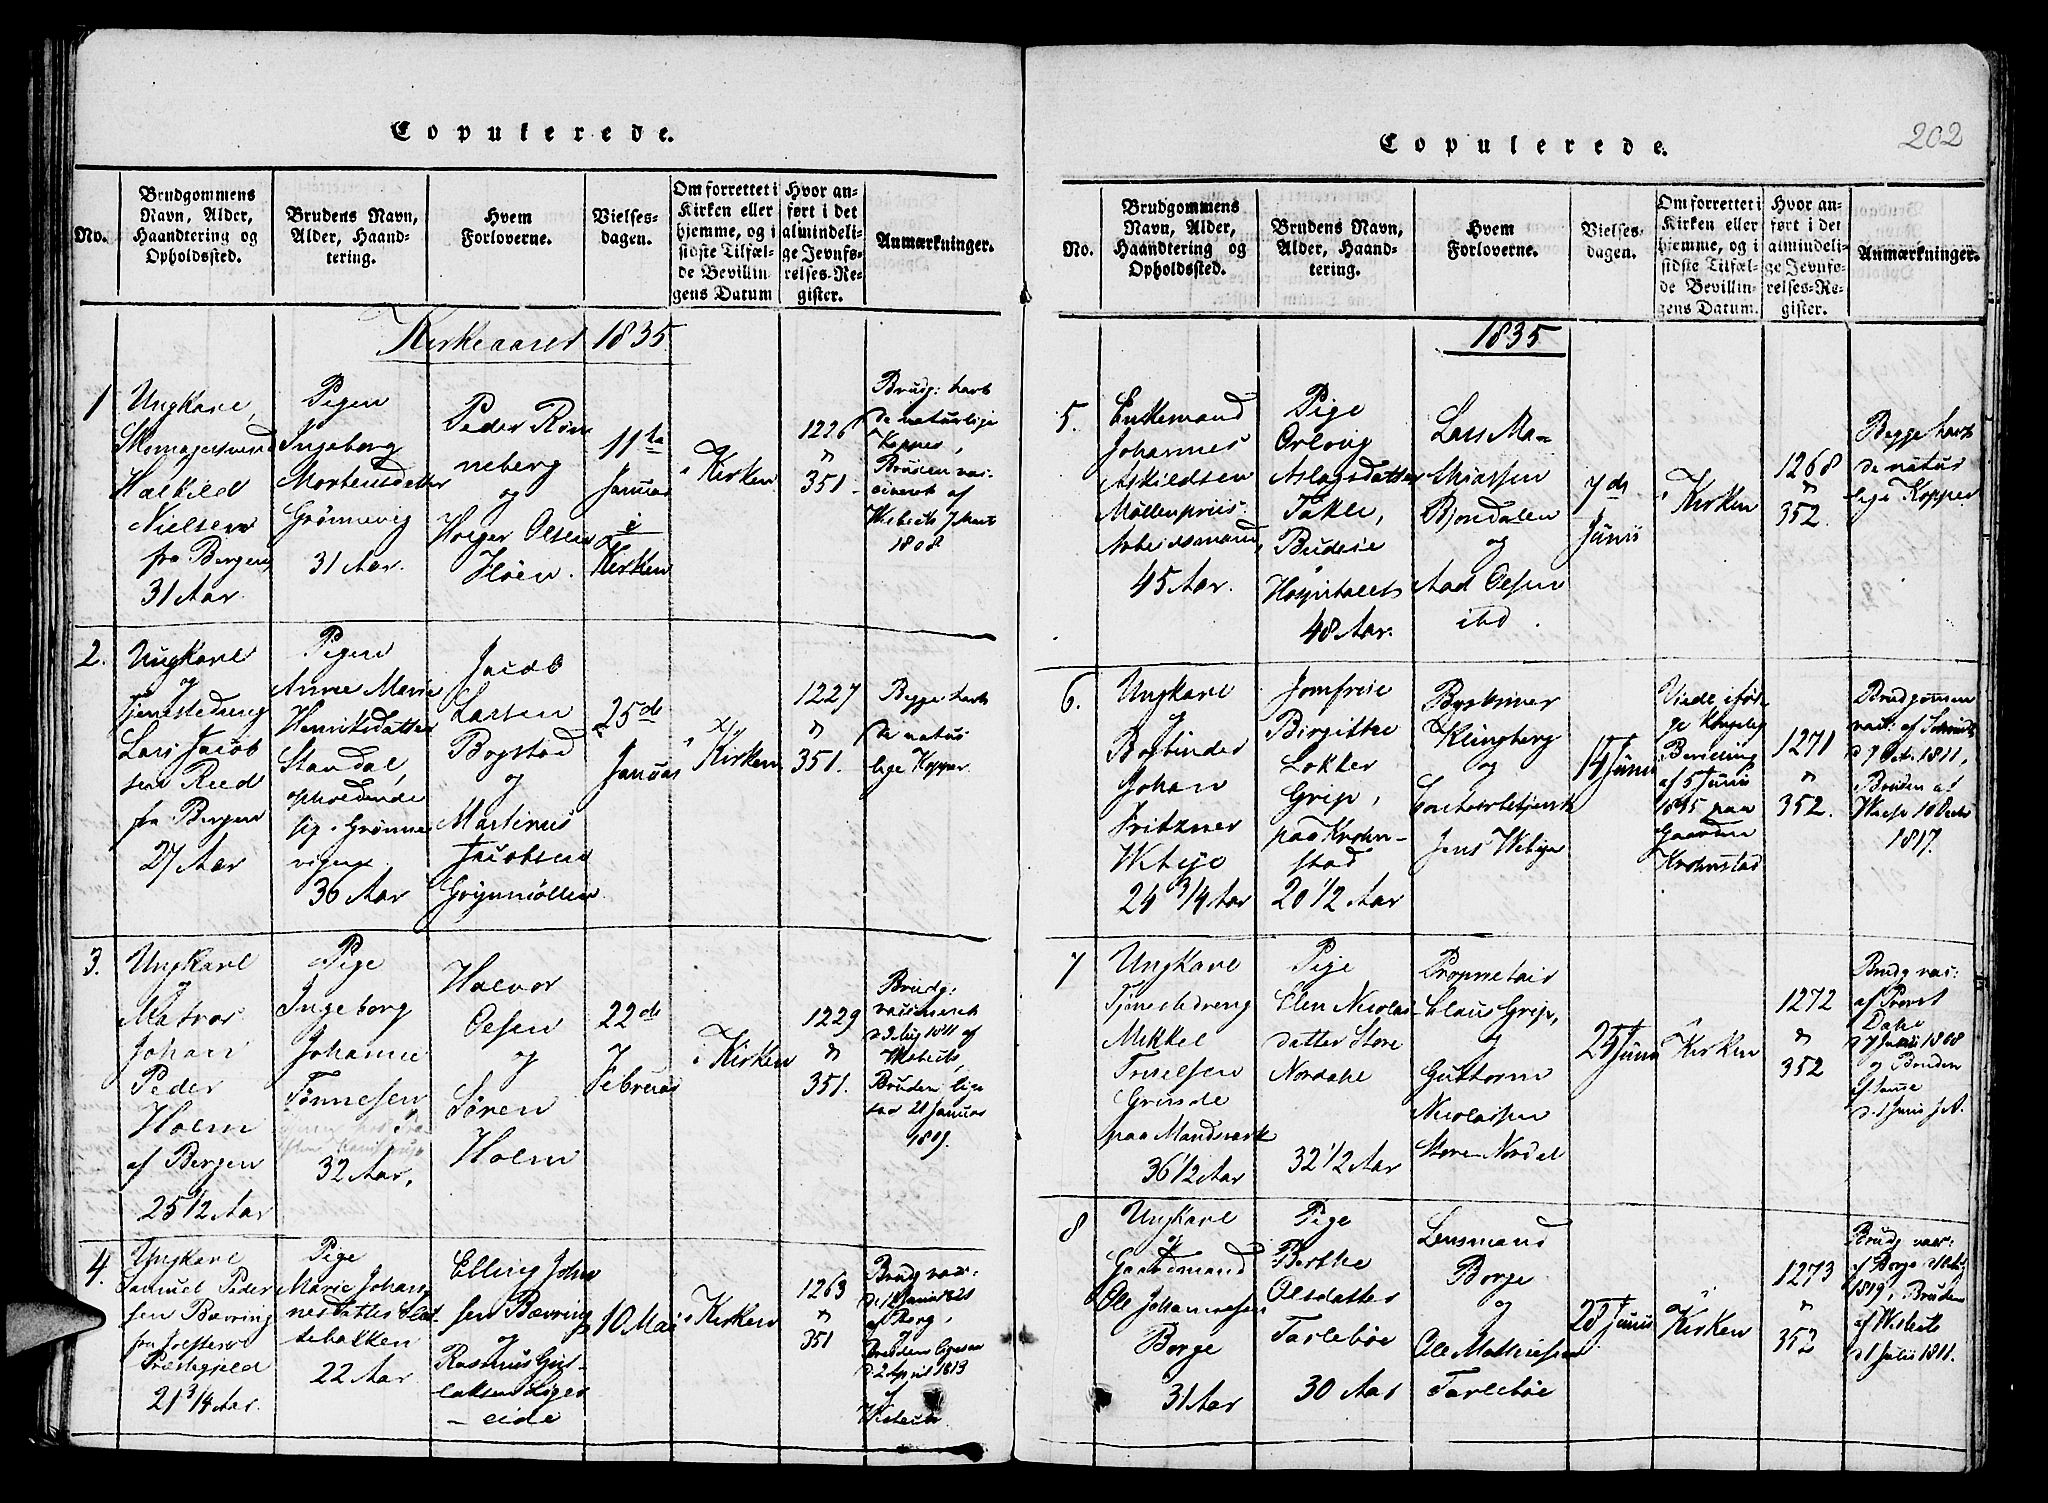 Copulerede.
No.
Brudgommens
Navn, Alder,
Haandtering og
Opholdssted.
Brudens Navn,
Alder, Haand-
tering.
Hvem
Forloverne.
Vielses-
dagen.
Om forrettet i
Kirken eller
hjemme, og i
sidste Tilfæl-
de Bevillin-
gens Datum
Hvor an-
ført i det
almindeli-
ge Jevnfø-
relses-Re-
gister.
Anmærkninger.
Kirkeaaret 1835
1
Ungkarl,
Skomagersvend
Halkild
Nielsen
fra Bergen
31 Aar.
Pigen
Ingeborg
Mortensdatter
Grønnevig
31 Aar.
Peder Rön
neberg
og
Holger Olsen
Höen.
11te
Januar
i
Kirken
i Kirken
1226
351.
Brudg: havt
de naturlige
Kopper,
Bruden vac-
cineret af
Wisbech 7 Mart
1808
2.
Ungkarl
og
Tjenestedreng
Lars Jacob
sen Reed
fra Bergen
27 Aar
Pigen
Anne Marie
Henriksdatter
Standal,
opholdende
sig i Grønne
vigen
36 Aar
Jacob
Larsen
Bogstad
og
Martinus
Jacobsen
Grijnmöllen
25de
Januar
i Kirken
1227
351.
Begge havt
de natur
lige Kopper.
3.
Ungkarl
og
Matros
Johan
Peder
Holm
af Bergen
25 1/2 Aar
Pige
Ingeborg
Johanne
Tønnesen
32 Aar,
Halvor
Olsen
og
Sören
Holm
22de
Februar
i Kirken
1229
351.
Brudg:
vaccineret
af
Wisbech,
Bruden lige
saa 21 Januar
1809.
4.
Ungkarl
Samuel Peder
sen Bævring
fra Jolster
Præstegjeld
21 3/4 Aar.
Pige
Marie Johan
nesdatter Slet
tebakken
22 Aar
Elling John
sen Bævring
og
Rasmus Gul-
laksen Liger
-eide
10 Mai
i Kirken
1263
351
Brudg vac:
d 12 Junii 1821
af Berg,
Bruden ligesaa
d 2 April 1813
af
Wisbech
Copulerede.
202
No.
Brudgommens
Navn, Alder,
Haandtering og
Opholdssted.
Brudens Navn,
Alder, Haand-
tering.
Hvem
Forloverne.
Vielses-
dagen.
Om forrettet i
Kirken eller
hjemme, og i
sidste Tilfæl-
de Bevillin-
gens Datum.
Hvor an-
ført i det
almindeli-
ge Jevnfø-
relses-Re-
gister.
Anmærkninger.
1835
5.
Enkemand
Johannes
Askildsen
Möllenpriis
Arbeidsmand,
45 Aar.
Pige
Orlovig
Aslagsdatter
Takle,
Budeie
Hospitalets
48 Aar.
Lars Ma-
thiassen
Bjondalen
og
Aad Olsen
ibd.
7de
Junii
i Kirken
1268
352.
Begge havt
de natur
lige Kopper
6.
Ungkarl
og
Bogbinder
Johan
Fritzner
Weltje
24 3/4 Aar
Jomfrue
Birgitte
Lokker
Grip,
paa Krohn-
stad
20 1/2 Aar
Klingberg
og
Jens
15 Junii
Viede iføl
ge Kongelig
Bevilling
af 5 Junii
1835 paa
Gaarden
Krohnstad
1271
352.
Brudgommen
vac: af Schmidt
d 7 Octr 1811,
Bruden af
1817.
7
Ungkarl
Tjenestedreng
Mikkel
Truelsen
Grinde
paa Mandsverk
36 1/2 Aar
Pige
Elen Nicolas
datter Store
Nordahl
32 1/2 Aar
Proprietair
Claus Grip,
og
Guttorm
Nicolaisen
Store Nordal
25 Junii
i Kirken
1272
352
Brudg vac:
af Provst
Dahl
d 7 Junii 1808
og Bruden
af samme
d. 1 Junii s. A.
8
Ungkarl
og
Gaardmand
Ole Johannesen
Borge
31 Aar
Pige
Berthe
Olsdatter
Tarleböe
30 Aar
Lensmand
Borge
og
Ole Mathiesen
Tarleböe
28 Junii
i Kirken
1273
352
Brudg vac:
af Borge
1819, Bruden
af Wisbech
d 1 Julii 1811.